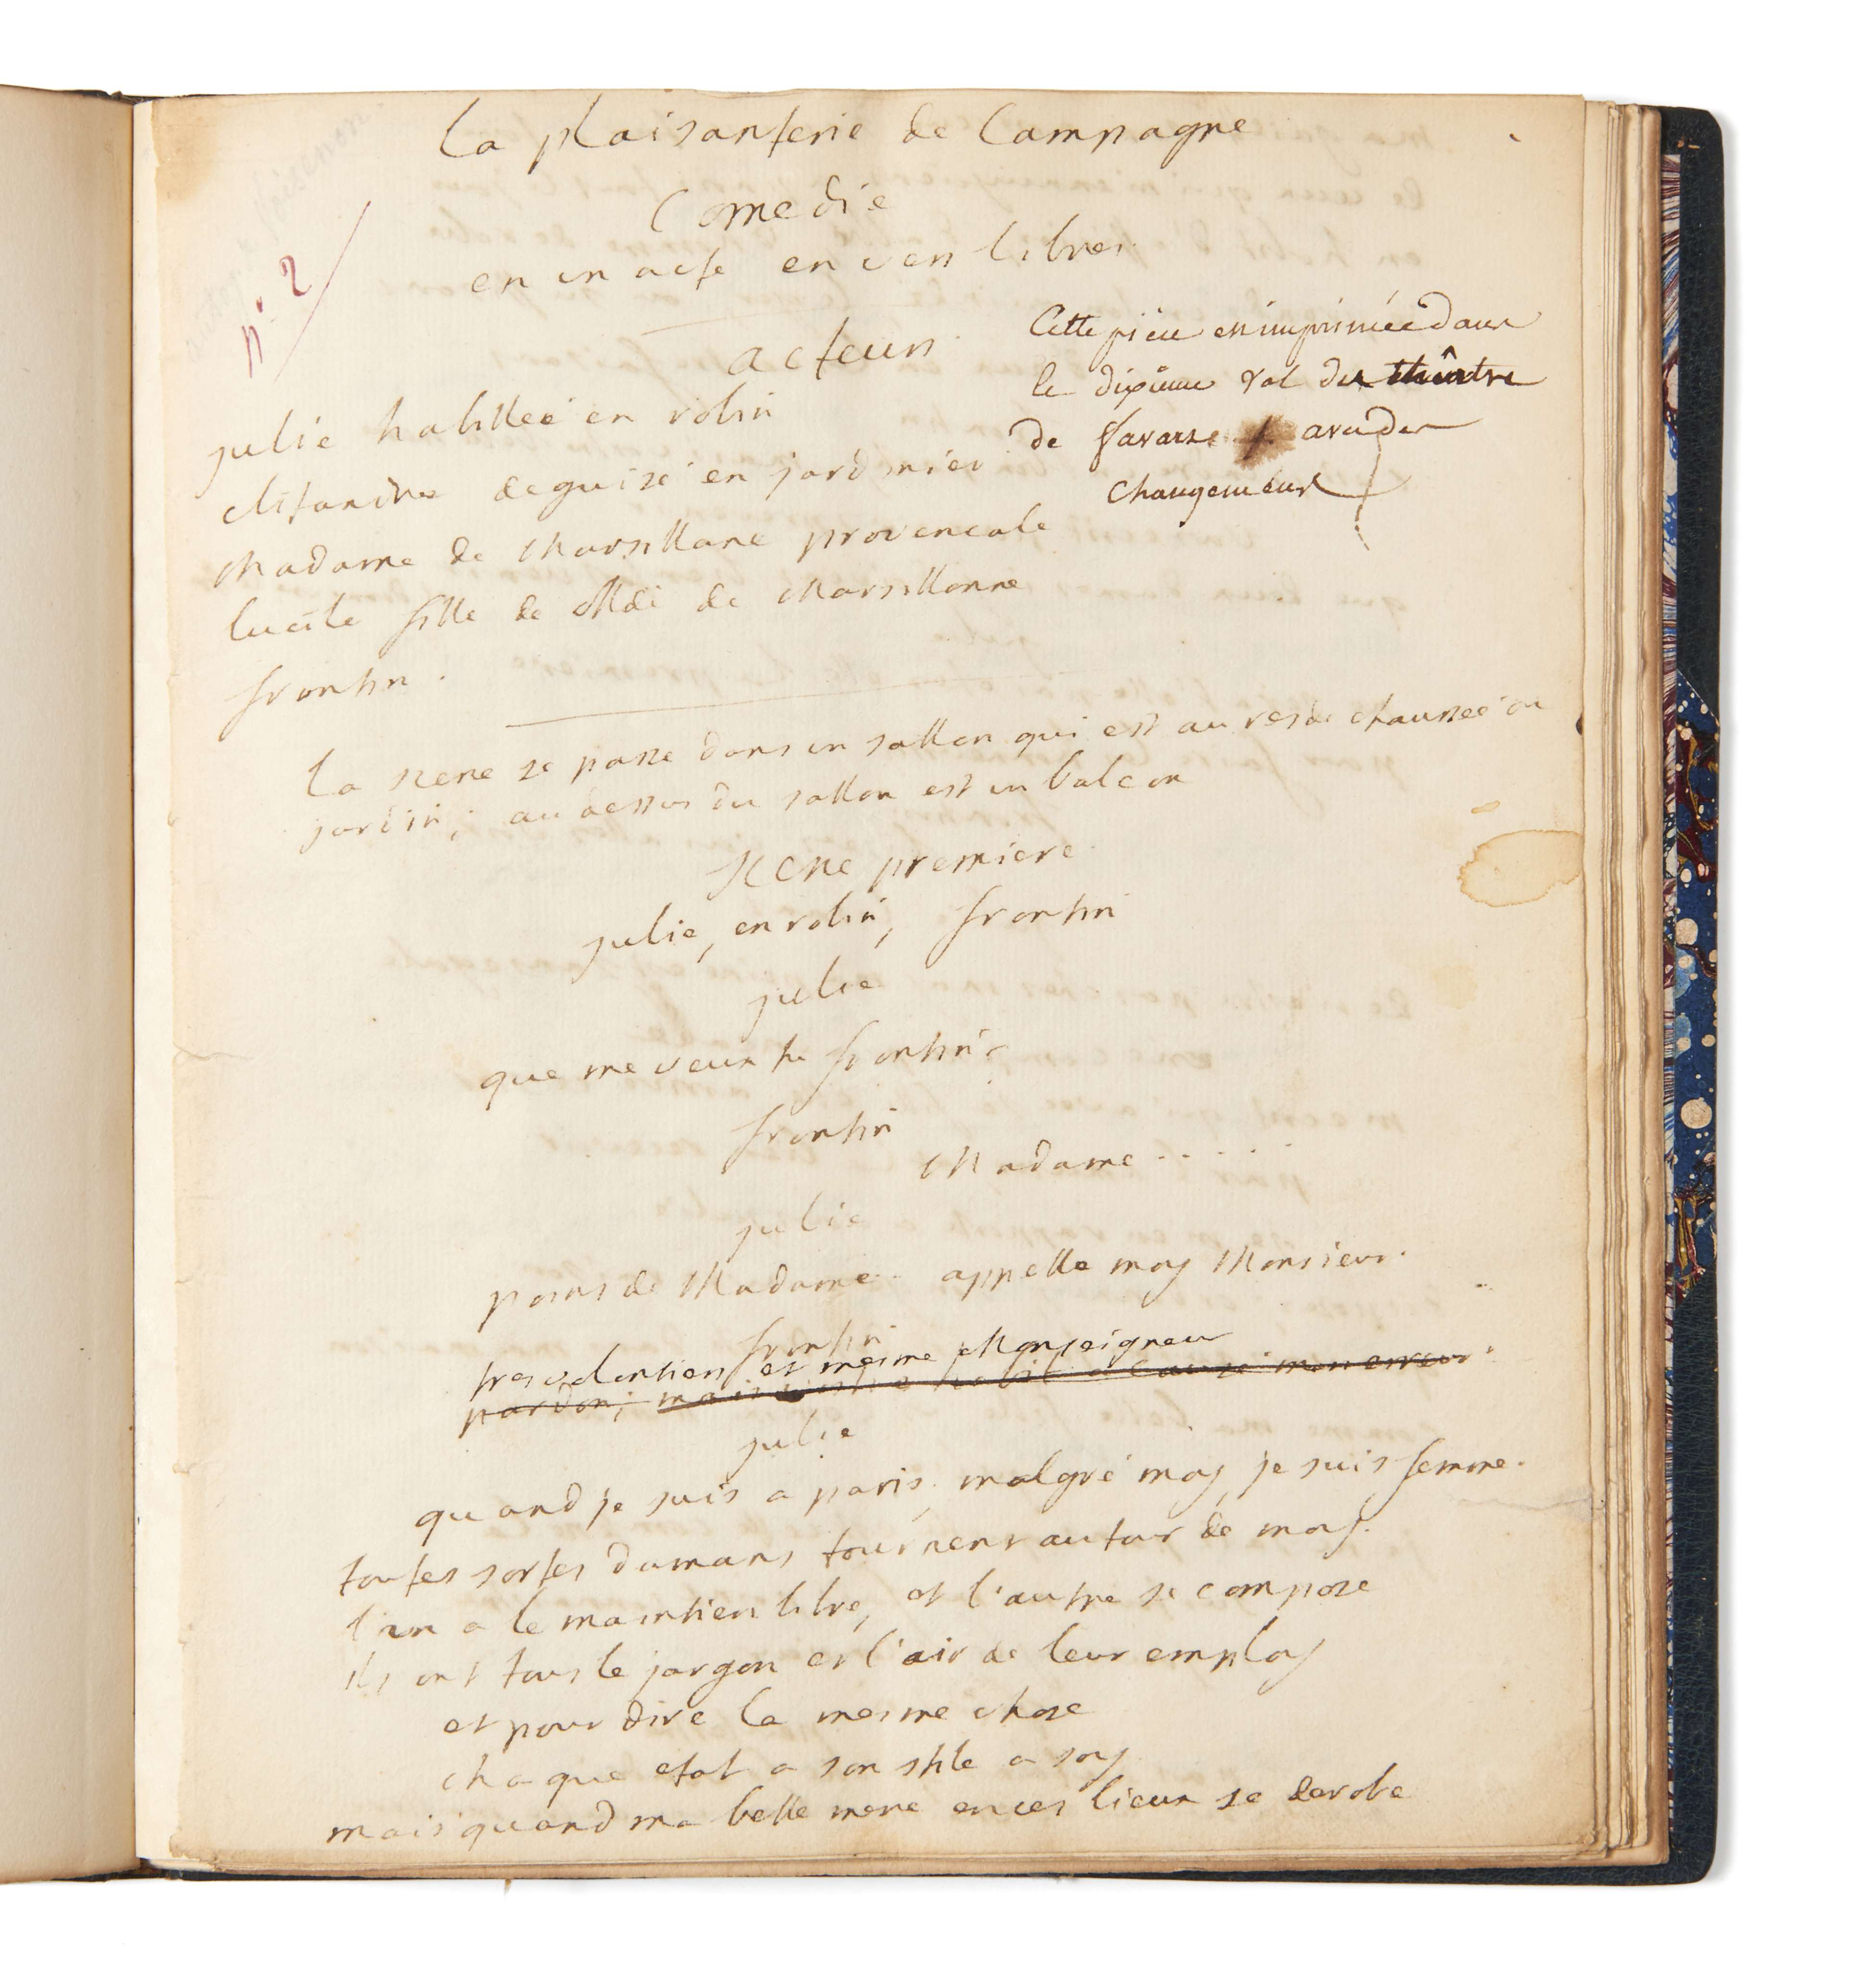 La plaisanterie de Campagne
Comedie
en un acte en vers libres
n.° 2
acteurs
Cette pièce est imprimée dans
le dixieme vol des théâtre
de favart avec des
changemens
julie habilleé en robin
clitandre deguisé en jardinier
Madame de Marsillane provencale
lucile fille de Mde de Marsillanne
frontin.
la scene se passe dans un sallon qui est au resde chausseé du
jardin; au dessus du sallon est un balcon
scene premiere
julie, en robin, frontin
julie
que me veux tu frontin?
frontin
Madame.....
julie
point de Madame. appelle moy Monsieur.
frontin
tres volontiers et mesme Monseigneur
pardon; mais votre habit a causé mon erreur.
julie
quand je suis a paris, malgré moy, je suis femme.
toutes sortes damans tournent autour de moy.
l'un a le maintien libre, et l'autre se compose
ils ont tous le jargon et l'air de leur employ
et pour dire la mesme chose
chaque etat a son stile a soy
mais quand ma belle mere en ces lieux se derobe